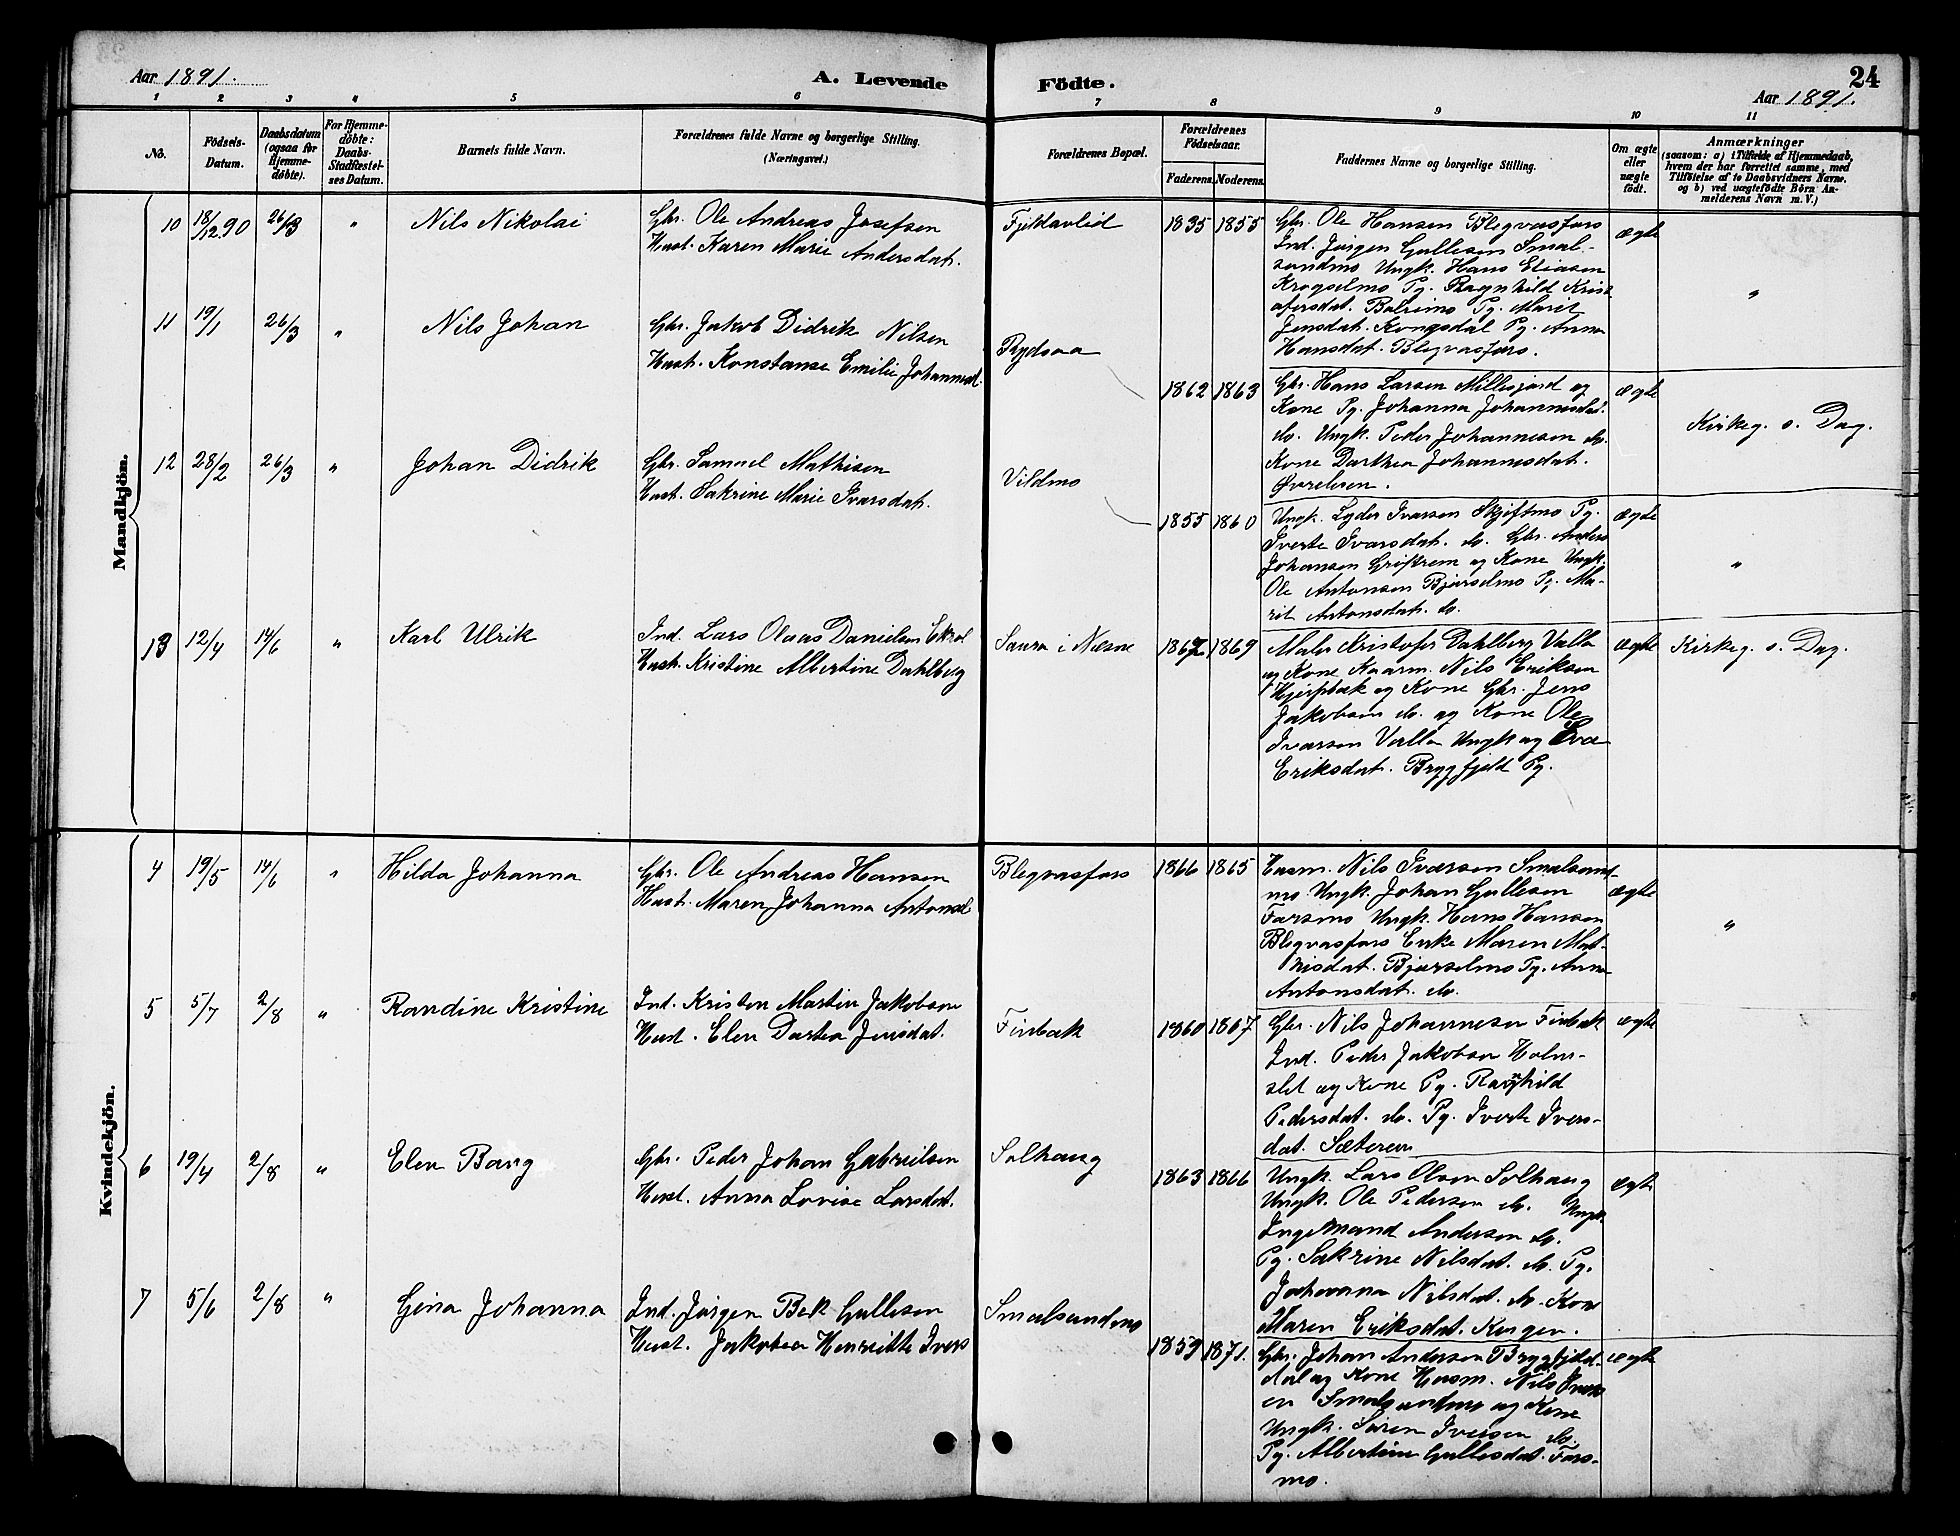 Aar 1891.
A. Levende
Födte.
24
Aar 1891.
1 2 3 4 5 6 7 8 9 10 11
No.
Födsels-
Datum.
Daabsdatum
(ogsaa for
Hjemme-
døbte).
For Hjemme-
døbte:
Daabs-
Stadfæstel-
ses Datum.
Barnets fulde Navn.
Forældrenes fulde Navne og borgerlige Stilling.
(Næringsvei.)
Forældrenes Bopæl.
Forældrenes
Födselsaar.
Faderens. Moderens.
Faddernes Navne og borgerlige Stilling.
Om ægte
eller
uægte
födt.
Anmærkninger
(saasom: a) i Tilfælde af Hjemmedaab,
hvem der har forrettet samme, med
Tilføielse af to Daabsvidners Navne.
og b) ved uægtefödte Börn An-
melderens Navn m. V.)
Mandkjön.
10 18/12 90 26/3 " Nils Nikolai
Gbr. Ole Andreas Josefsen
Hust. Karen Marie Andersdat.
1835 1855
Gbr. Ole Hansen Blegvasfors
Ind. Jørgen Gullesen Smal-
sundmo Ungk. Hans Eliasen
Krogselmo Pg. Ragnhild Krist
ofersdat. Pg. Marit
Jensdat. Kongsdal Pg. Anna
Hansdat. Blegvasfors.
ægte
"
11 19/1 26/3 " Nils Johan
Gbr. Jakob Didrik Nilsen
Hust. Konstanse Emilie Johannesd.
1862 1863
Gbr. Hans Larsen Millesjord og
Kone Pg. Johanna Johannesdat.
do. Ungk. Peder Johannesen do.
Kone Dorthea Johannesdat.
ægte
Kirkeg. s. Dag.
12 28/2 26/3 " Johan Didrik
Gbr. Samuel Mathisen
Hust. Sakrine Marie Ivarsdat.
Vildmo
1855 1860
Ungk. Lyder Ivarsen Skjeftmo Pg.
Iverte Ivarsdat. do. Gbr. Anders
Johansen Grøftrem og Kone Ungk.
Ole Antonsen Bjørselmo Pg. Ma-
rit Antonsdat. do.
ægte
"
13 12/4 14/6 " Karl Ulrik
Ind. Lars Olaus Danielsen
Hust. Kristine Albertine Dahlberg
Saura i Nesne
1867 1869
Maler Kristofer Dahlberg Valla
og Kone Husm. Nils Eriksen
og Kone Gbr. Jens
Jakobsen do. og Kone Ole
Ivarsen Valla Ungk og Eva
Eriksdat. Brygfjeld Pg.
ægte
Kirkeg. s. Dag.
Kvindekjön.
4 19/5 14/6 " Hilda Johanna
Gbr. Ole Andreas Hansen
Hust. Maren Johanna Antonsd
Blegvasfors
1866 1865
Husm. Nils Iversen Smalsund-
mo Ungk. Johan Gullesen
Forsmo Ungk. Hans Hansen
Blegvasfors Enke Maren Mat-
hisdat. Bjørselmo Pg. Anna
Antonsdat. do.
ægte
"
5 5/7 2/8 " Randine Kristine
Ind. Kristen Martin Jakobsen
Hust. Elen Dortea Jensdat.
Finbak
1860 1867
Gbr. Nils Johannesen Finbak
Ind. Peder Jakobsen Holm-
slet og Kone Pg. Ragnhild
Pedersdat. do. Pg. Iverte Ivers-
dat. Sæteren
ægte
6 19/4 2/8 " Elen Bang
Gbr. Peder Johan Gabrielsen
Hust. Anna Lovise Larsdat.
Solhaug
1863 1866
Ungk. Lars Olsen Solhaug
Ungk. Ole Pedersen do. Ungk.
Ingemand Andersen do.
Pg. Sakrine Nilsdat. do. Pg.
Johanna Nilsdat. do. Kone
Maren Eriksdat. Kongen.
ægte
7 5/6 2/8 " Gina Johanna
Ind. Jørgen Bek Gullesen
Hust. Jakobea Henriette Ivers
Smalsundmo
1859 1871.
Gbr. Johan Andersen Brygfjeld-
dal og Kone Husm. Nils Ivers
en Smalsundmo og Kone
Ungk. Søren Iversen do.
Pg. Albertine Gullesdat. Fors-
mo.
ægte